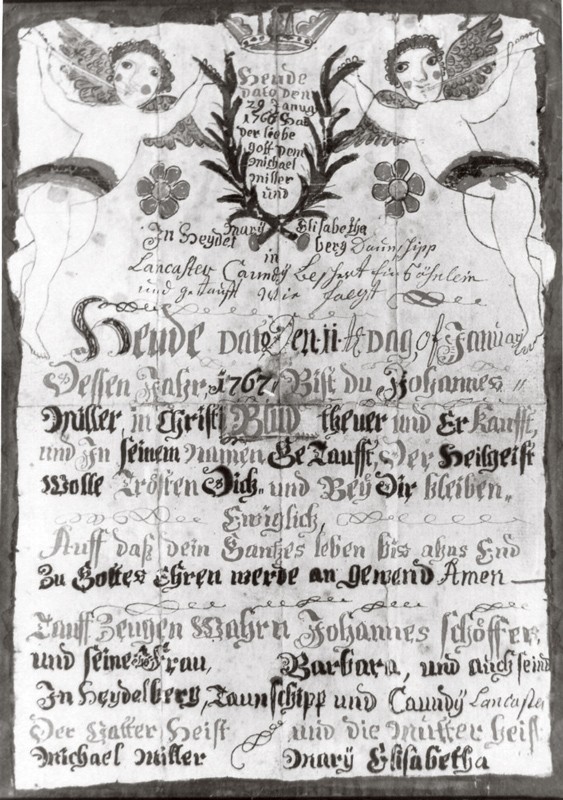 Heude
dato den
29 Janua
1766 Hat
der liebe
gott Dem
Michael
Miller
und
Mary Elisabetha
In Heydel berg Daunschipp
in
Lancaster Caundy Beschert ein Söhnlein
und getaufft Wie folgt
Heude dato Den 11 th Dag, of January
Dessen Jahr, 1767 Bist du Johannes
Miller, in Christi Blud theuer und Er Kaufft,
und In seinem Namen Ge Taufft, Der Heilgeist
Wolle Trösten Dich, und Bey Dir bleiben,
Ewiglich,
Auff daß dein Gantzes leben biss ahns End
Zu Gottes Ehren werde an gewend Amen
Tauff Zeugen Wahrn Johannes schöffer,
und seine Frau, Barbara, und auch seind
In Heydelberg, Taunschipp und Caundy Lancaster
Der Vatter Heist und die Mutter heist
Michael Miller Mary Elisabetha